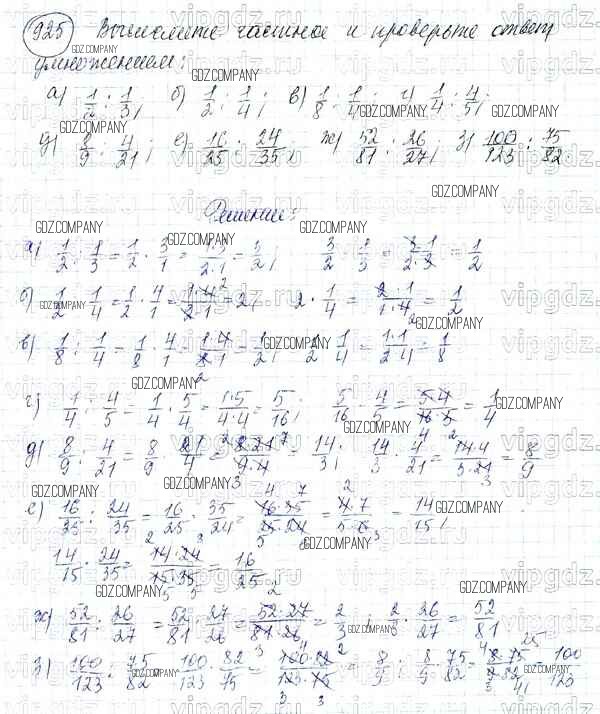 925 Вычислите частное и проверьте ответ
умножением:
а) 1/2 : 1/3; б) 1/2 : 1/4; в) 1/8 : 1/4; г) 1/4 : 4/5;
д) 8/9 : 4/21; е) 16/25 : 24/35; ж) 52/81 : 26/27; з) 100/123 : 75/82.
Решение:
а) 1/2 : 1/3 = 1/2 · 3/1 = 1·3/2·1 = 3/2; 3/2 · 1/3 = 3·1/2·3 = 1/2
б) 1/2 : 1/4 = 1/2 · 4/1 = 1·4/2·1 = 2; 2 · 1/4 = 2·1/1·4 = 1/2
в) 1/8 : 1/4 = 1/8 · 4/1 = 1·4/8·1 = 1/2; 1/2 · 1/4 = 1·1/2·4 = 1/8
г) 1/4 : 4/5 = 1/4 · 5/4 = 1·5/4·4 = 5/16; 5/16 · 4/5 = 5·4/16·5 = 1/4
д) 8/9 : 4/21 = 8/9 · 21/4 = 8·21/9·4 = 14/3; 14/3 · 4/21 = 14·4/3·21 = 8/9
е) 16/35 : 24/35 = 16/25 · 35/24 = 16·35/25·24 = 4·7/5·6 = 14/15;
14/15 · 24/35 = 14·24/15·35 = 16/25
ж) 52/81 : 26/27 = 52/81 · 27/26 = 52·27/81·26 = 2/3; 2/3 · 26/27 = 52/81
з) 100/123 : 75/82 = 100/123 · 82/75 = 100·82/123·75 = 8/9; 8/9 · 75/82 = 8·75/9·82 = 100/123
GDZ.COMPANY
vipgdz.ru